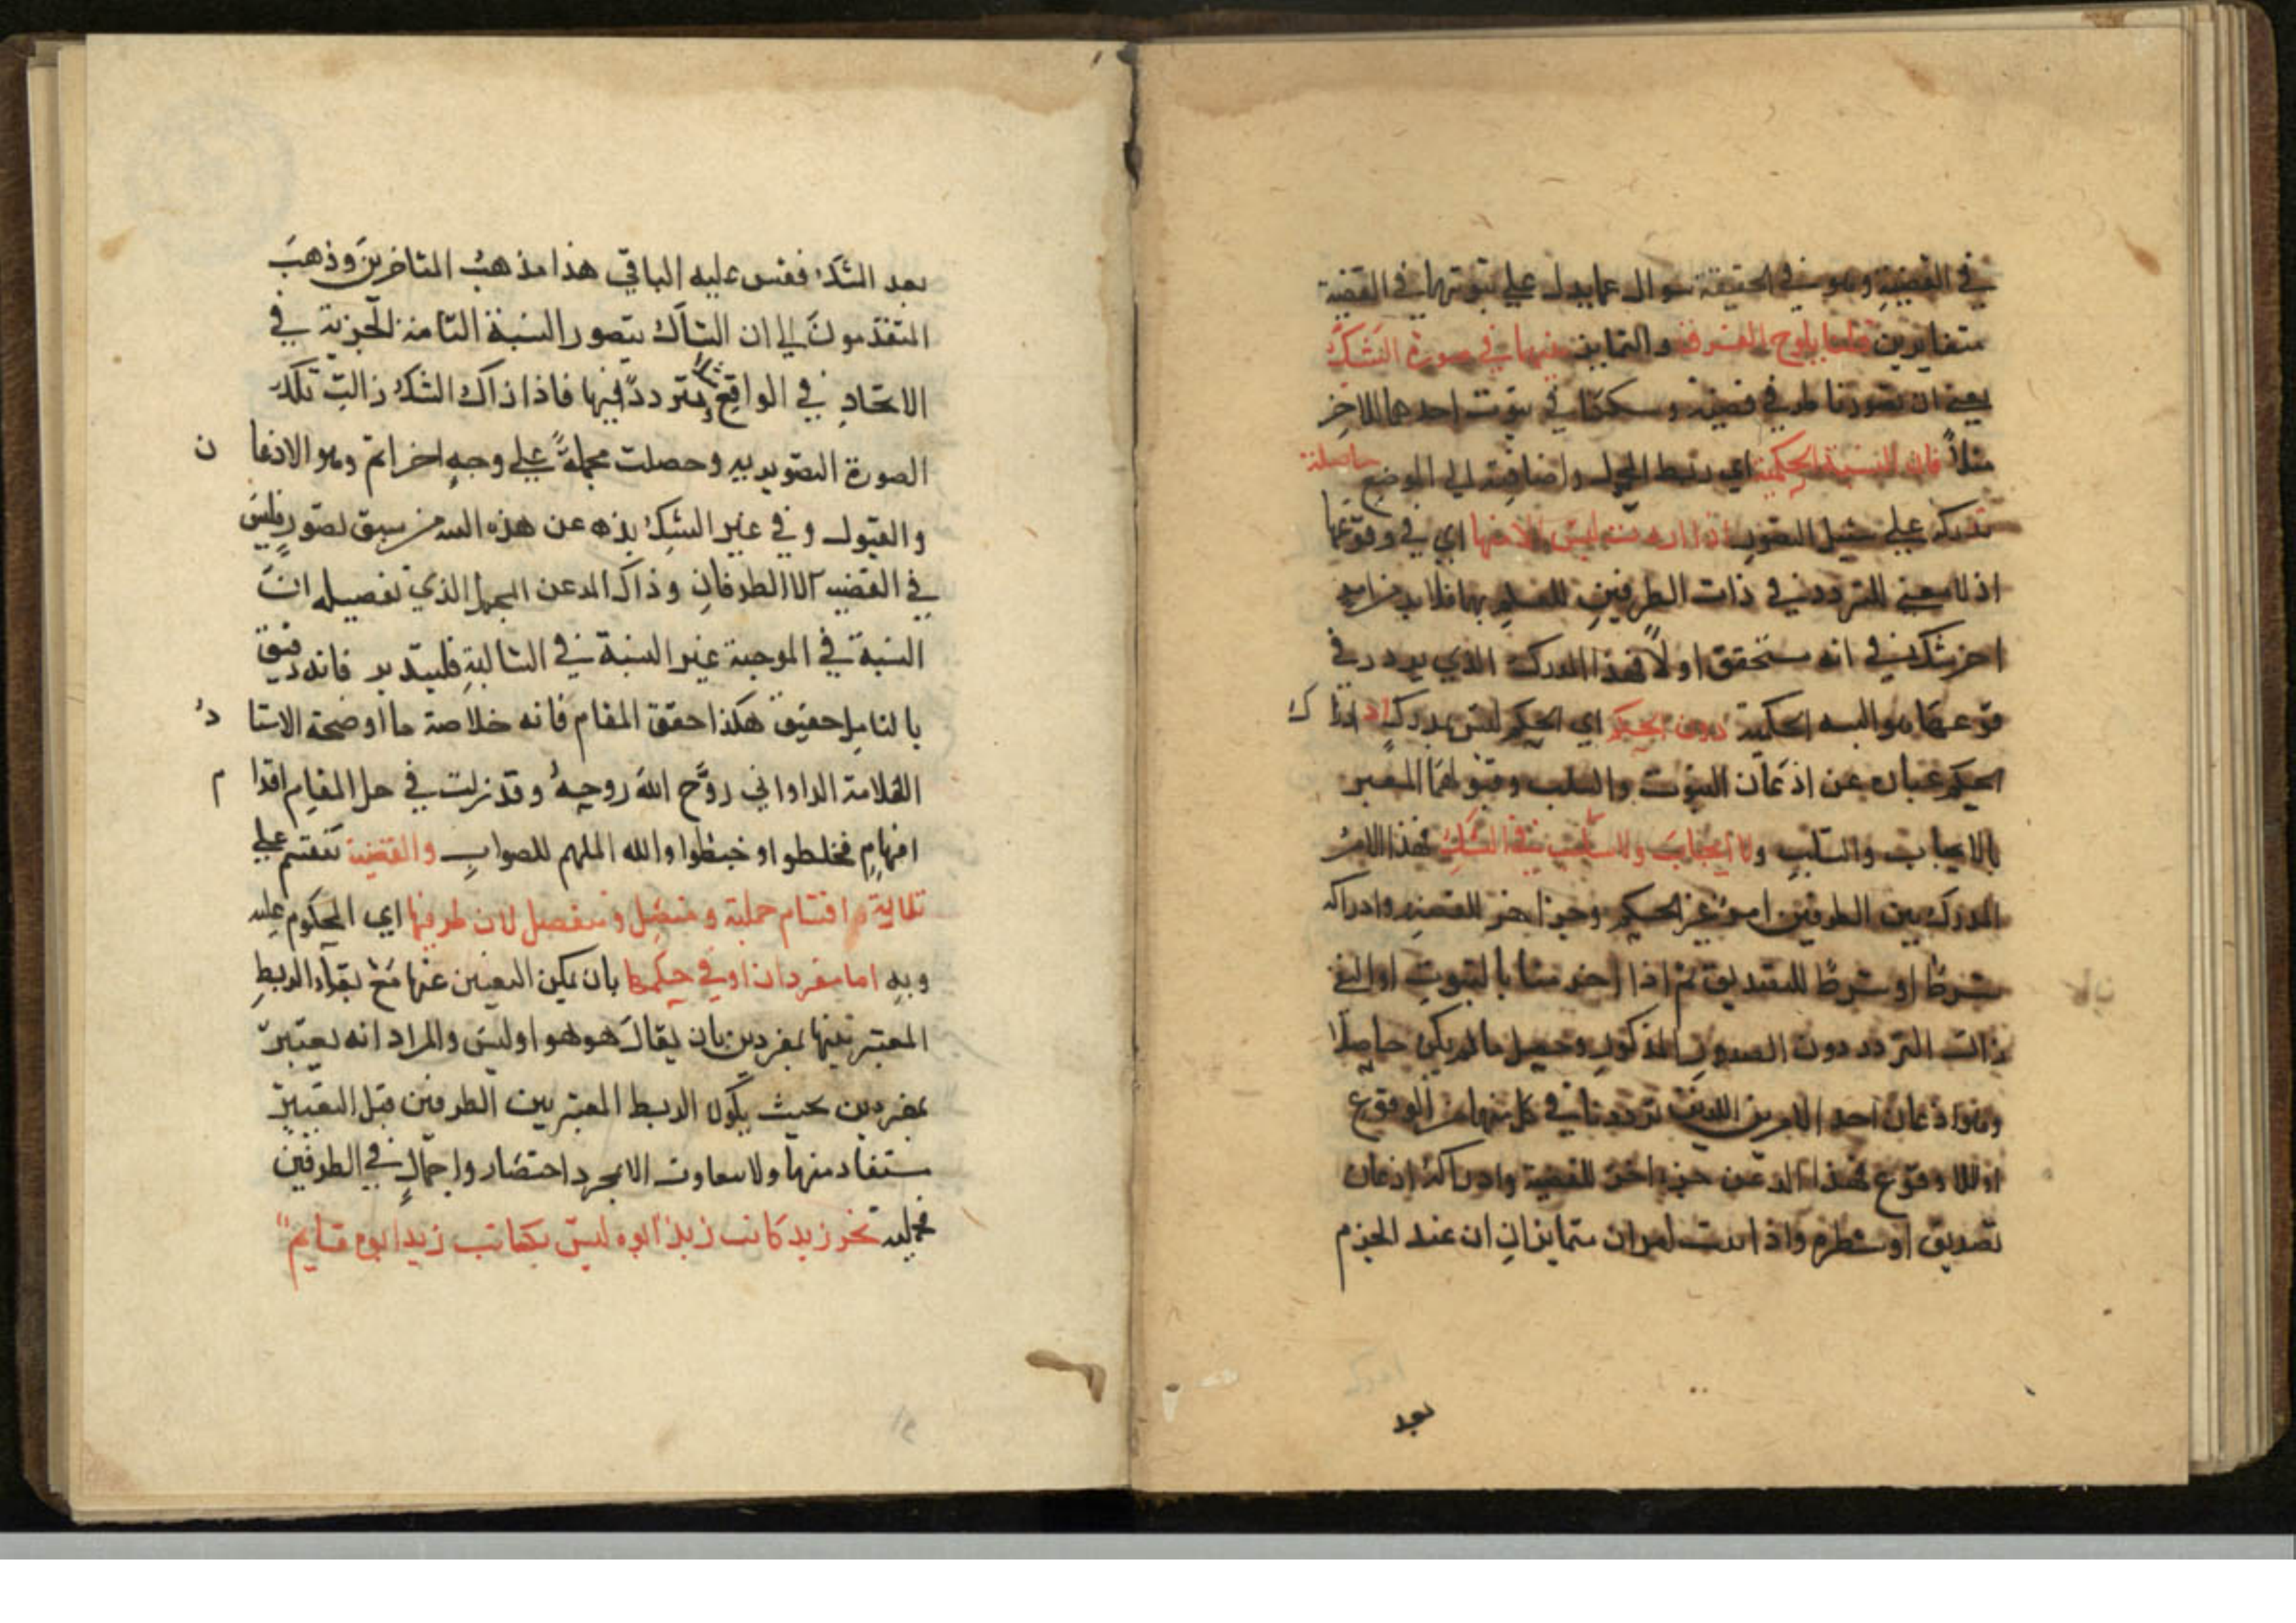 في القضية وهو في الحقيقة سوال عما يدل علي ثبوتهما في القضية
متغايرين قلنا يلوح الفرق والتمايز بينهما في صورة الشك
يعني ان تصورنا طرفي قضية وسككنا في ثبوت احدهما للاخر
مثلاً فان النسبة الحكمية اي ربط المحمول واضافته الي الموضوع حاصلة
تدركه علي سبيل التصور اي في وقوعها
اذ لا معني للتردد في ذات الطرفين للعلم بهما فلا بد من امر
اخر شك في انه متحقق اولاً فهذا المدرك الذي يردد في
وقوعها هو النسبه الحكمية دون الحكم اي الحكم ليس بمدرك اذ ادراك
الحكم عبارة عن اذعان الثبوت والسلب وقبولهما المعبر
بالايجاب والسلب ولا ايجاب ولا سلب في الشك فهذا الامر
المدرك بين الطرفين امر غير الحكم وجزء اخر للقضية وادراكه
شرط او شرطا للتصديق ثم اذا اخبرنا بالثبوت او النفي
زالت التردد دون الصورة المذكورة وحصل ما لم يكن حاصلا
وهو اذعان احد الامرين اللذين ترددنا في كل منهما من الوقوع
او اللا وقوع فهذا المذعن جزء اخر للقضية وادراكه اذعان
تصديق او شطره واذا ثبت امران متمايزان ان عند الجزم
بعد
بعد الشك فقس عليه الباقي هذا مذهب المتاخرين وذهب
المتقدمون الي ان الشاك يتصور النسبة التامة الخبرية في
الاتحاد في الواقع ويتردد فيها فاذا زاك الشك زالت تلك
الصورة التصويريه وحصلت مجملة علي وجه اخر اتم وهو الاذعان
والقبول وفي غير الشك بذه عن هذه من سبق تصور فليس
في القضيه الا الطرفان وذاك المذعن المجمل الذي تفصيله ان
النسبة في الموجبة غير النسبة في السالبة فليتدبر فانه دقيق
بالتامل حقيق هكذا حقق المقام فانه خلاصة ما اوضحة الاستاد
العلامة الداواني روح الله روحه وقد زلت في حل المقام اقدام
افهام فخلطوا وخبطوا والله الملهم للصواب والقضية تنقسم علي
ثلاثة اقسام حملية ومتصل ومنفصل لان طرفيها اي المحكوم عليه
وبه اما مفردان او في حكمها بان يمكن التعبير عنها مع بقاء الربط
المعتبر بينهما بمفردين بان يقال هو هو او ليس والمراد انه يعتبر
بمفردين بحيث يكون الربط المعتبر بين الطرفين قبل التعبير
ستفاد منها ولا الا بمجرد اختصار واجمال في الطرفين
فحمليه نحو زيد كاتب زيد ابوه ليس بكاتب زيد ابوه قايم